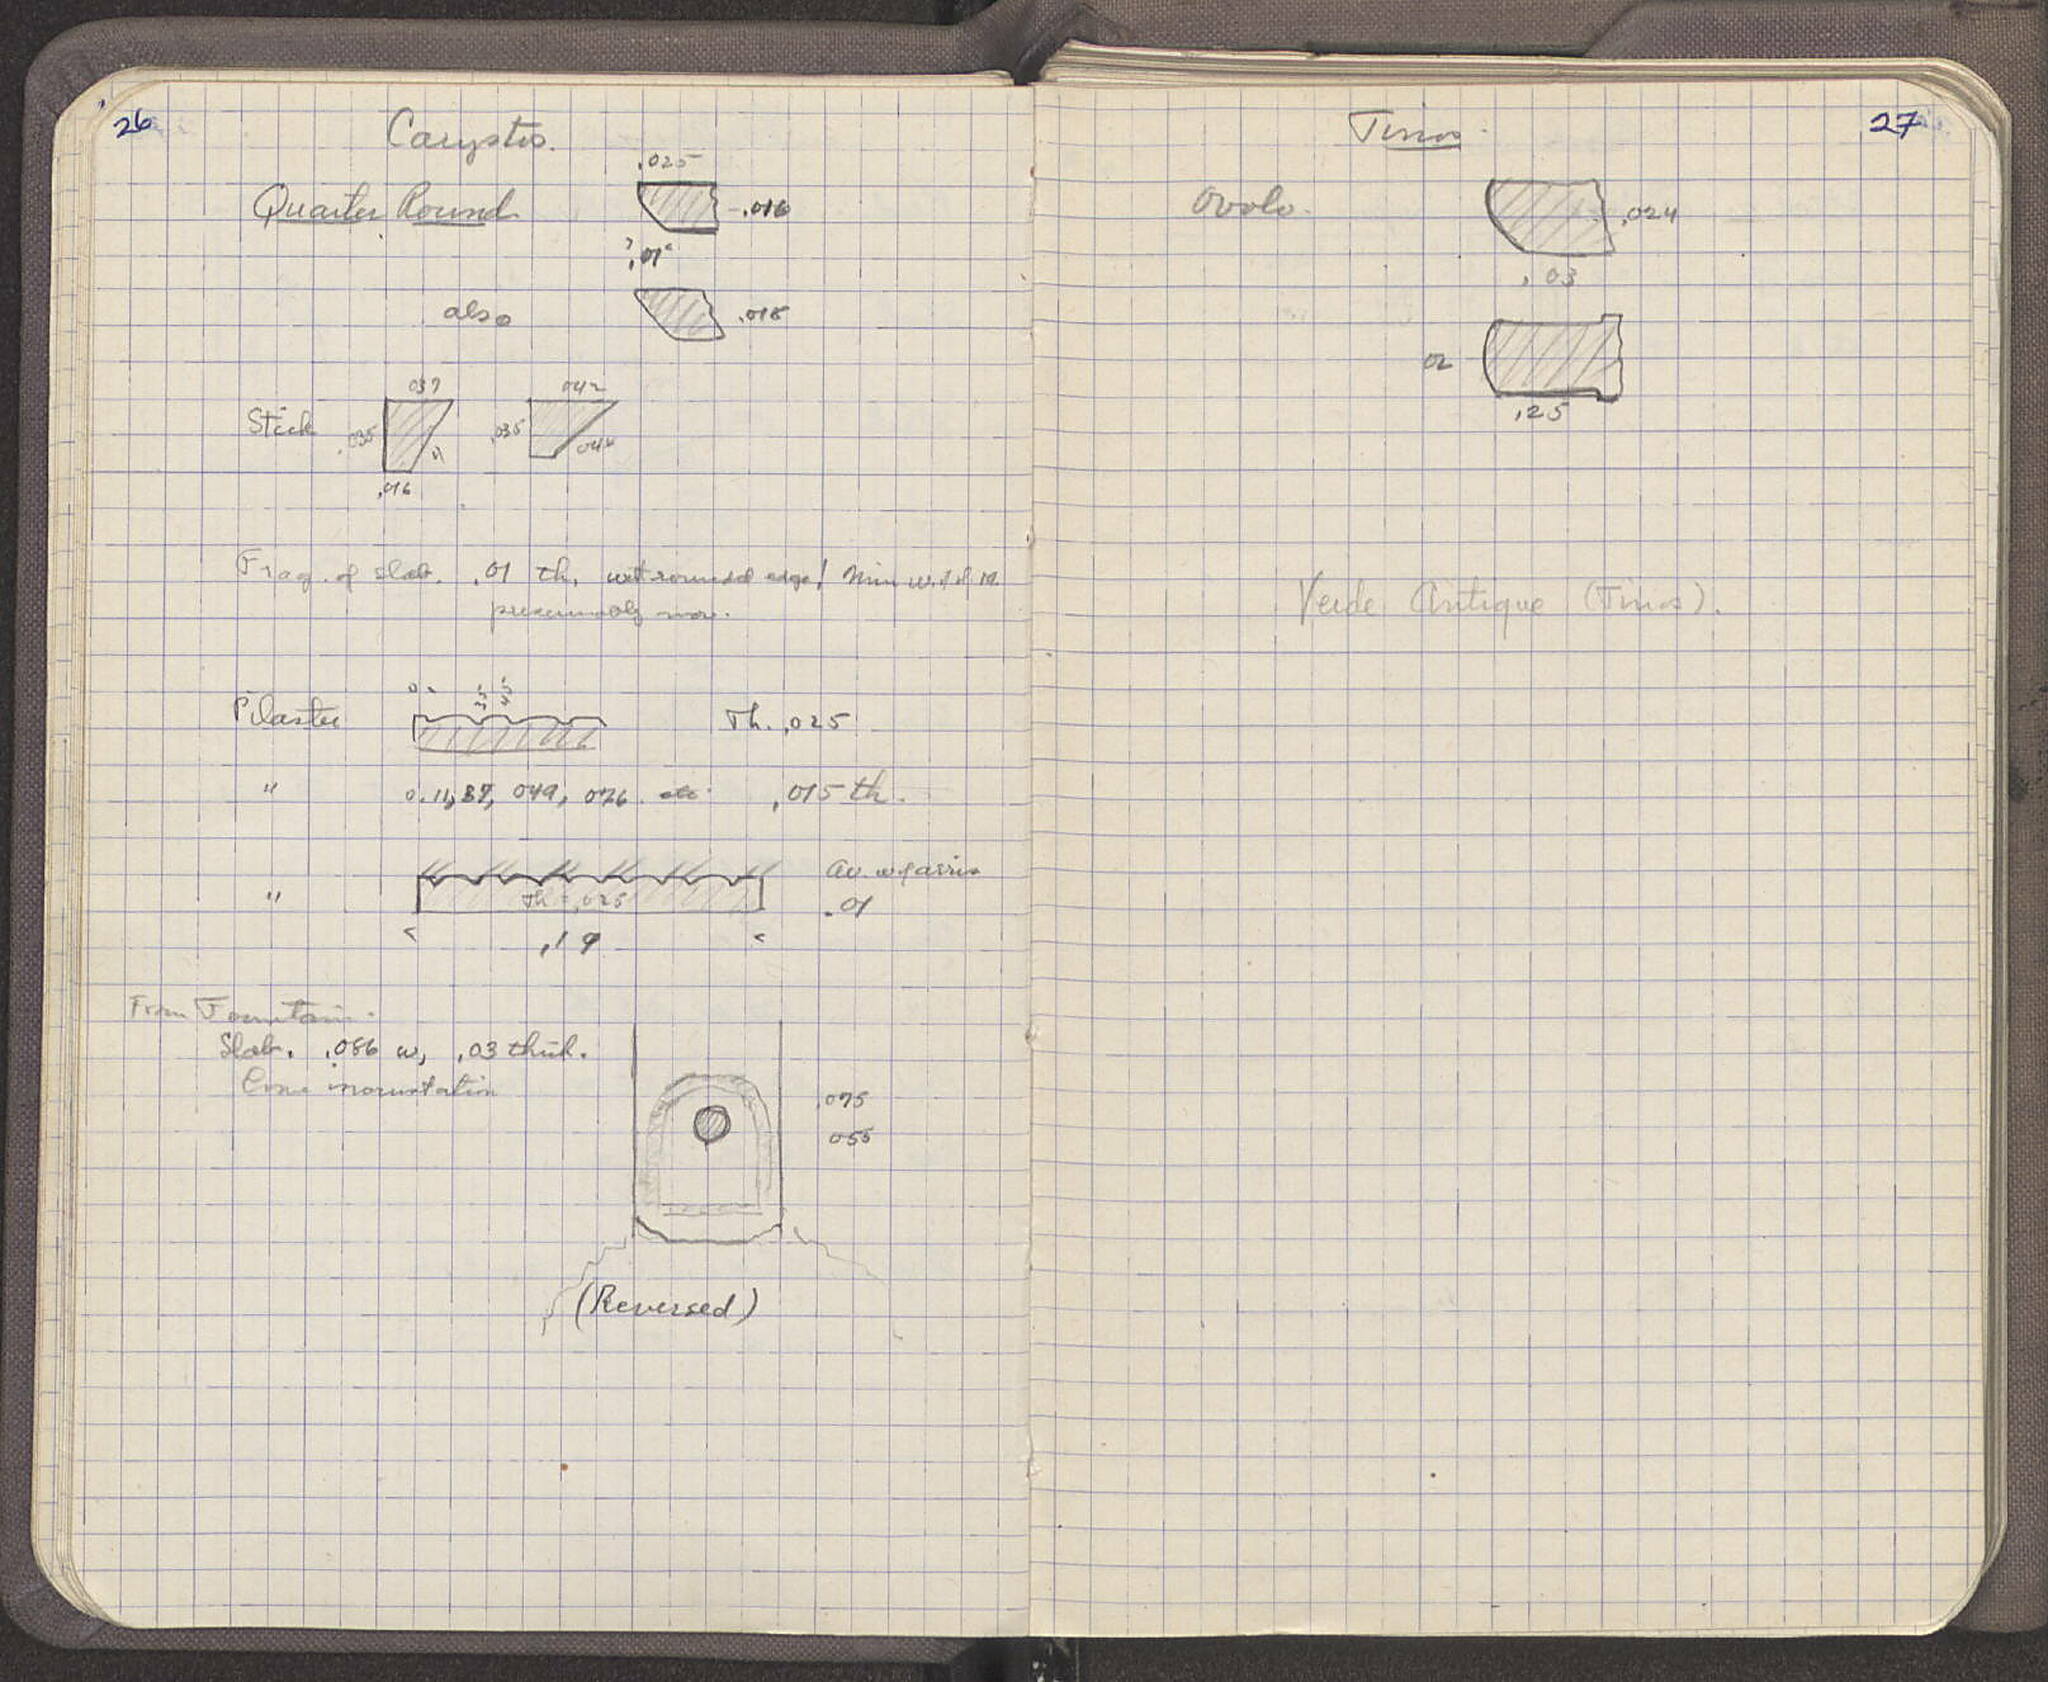 26
Carystos.
Quarter Round
.025
.016
? .01
also
.018
Stick
.037
.035
.016
.042
.035
.044
Frag. of slab. .01 th. with rounded edge!
presumably mor.
Pilaster
0
Th. .025
" 0. 11, 37, 049, 076. etc. .015 th.
" Th = .025
Av. w of arris
.01
.19
From Fountain.
Slab. .086 w, .03 thick.
Lime incrustation
.075
055
(Reversed)
27
Tinos.
Ovolo.
.024
.03
02
.25
Verde Antique (Tinos).